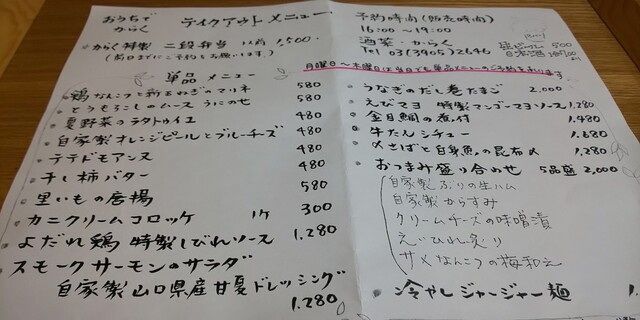 おうちで
からく
テイクアウトメニュー
・からく特製 二段弁当 1人前 1,500.-
(前日までに予約をお願いします)
単品 メニュー
鶏なんこつと新玉ねぎのマリネ 580
とうもろこしのムース うにのせ 580
夏野菜のラタトゥイエ 480
自家製オレンジピールとブルーチーズ 480
テテドモアンヌ 480
干し柿バター 480
里いもの唐揚 580
カニクリームコロッケ 1ケ 300
よだれ鶏 特製しびれソース 1,280
スモークサーモンのサラダ
自家製 山口県産甘夏ドレッシング 1,280
予約時間(販売時間)
16:00〜19:00
酒菜・からく
Tel 03(3905)2646
500
日本酒
月曜日〜木曜日は当日でも単品メニューのご予約を承ります
うなぎのだし巻たまご 2,000
えびマヨ 特製マンゴーマヨソース 1,280
金目鯛の煮付 1,480
牛たんシチュー 1,680
〆さばと白身魚の昆布〆 1,280
おつまみ盛り合わせ 5品盛 2,000
自家製ぶりの生ハム
自家製からすみ
クリームチーズの味噌漬
えいひれ炙り
サメなんこつの梅和え
冷やしジャージャー麺 1.